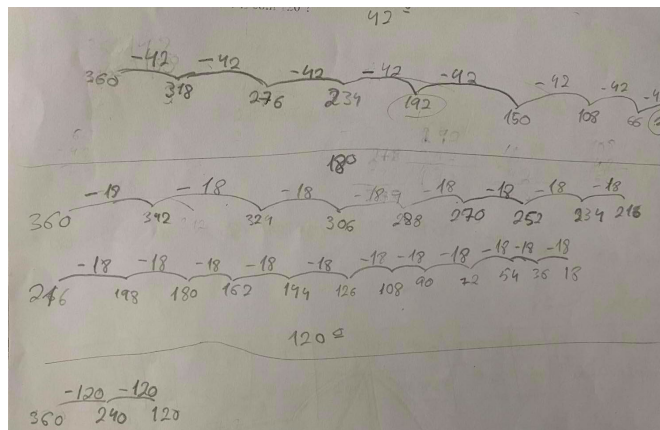 42º
-42 -42 -42 -42 -42 -42 -42
360 318 276 234 192 150 108 66
18º
-18 -18 -18 -18 -18 -18 -18 -18
360 342 324 306 288 270 252 234 216
-18 -18 -18 -18 -18 -18 -18 -18 -18 -18 -18
216 198 180 162 144 126 108 90 72 54 36 18
120º
-120 -120
360 240 120